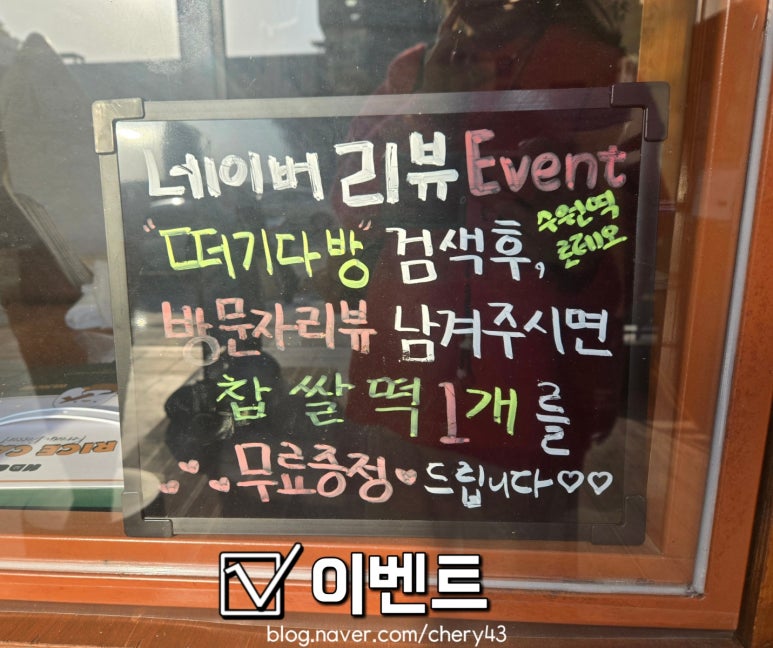 네이버 리뷰 Event
"떠기다방" 검색후,
수원역
로데오
방문자리뷰 남겨주시면
찹쌀떡 1개를
무료증정 드립니다
RICE CA
이벤트
blog.naver.com/chery43